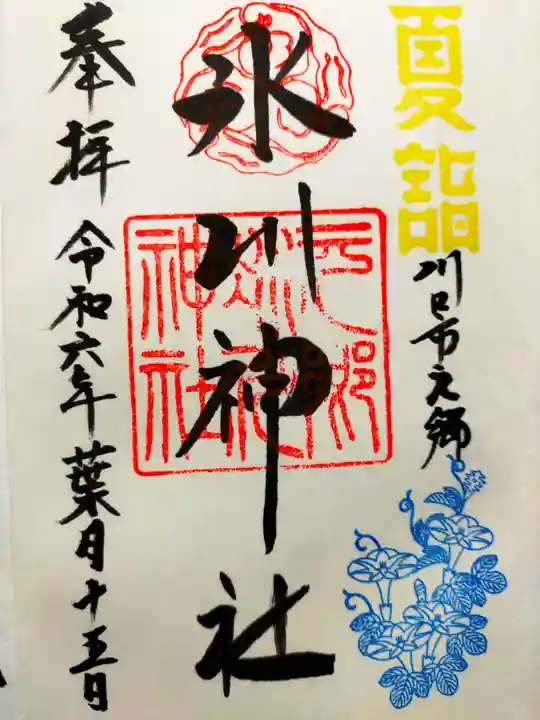 夏詣
川口市元郷
氷川神社
元郷
氷川神社
奉拝
令和六年葉月十五日